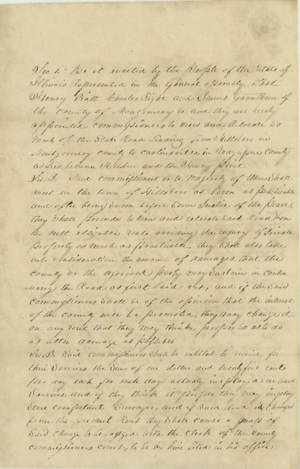 Sec 1. Be it enacted by the People of the State of
Illinois Represented in the General Assembly, That
Henry Pratt Charles and James Grantham of
the County of Montgomery be and they are hereby
appointed commissioners to view and relocate so
much of the State Road leading from Hillsboro in
Montgomery county to
as lies between Hillsboro and the County line.
Sec 2. Said commissioners or a Majority of them shall
meet in the town of Hillsboro as soon as practicable
and after being sworn before some Justice of the peace,
they shall proceed to view and relocate said road on
the most eligible route avoiding the injury of Private
Property as much as practicable, they shall also take
into consideration the amount of damages that the
county or the aggrieved party may sustain in
the Road as first laid out, and if the said
Commissioners shall be of the opinion that the interest
of the county will be promoted they may change it
on any route that they may think proper so as to do
as little damage as possible
Sec 3. Said commissioners shall be entitled to receive for
their Services the Sum of one dollar and twenty five cents
per day each for each day actually employed in said
Services and if they think it proper they may employ
Some competent Surveyor, and if said road is changed
from the present Road they shall cause a plat of
said change to be lodged with the clerk of the county
commissioners court to be by him filed in his office.